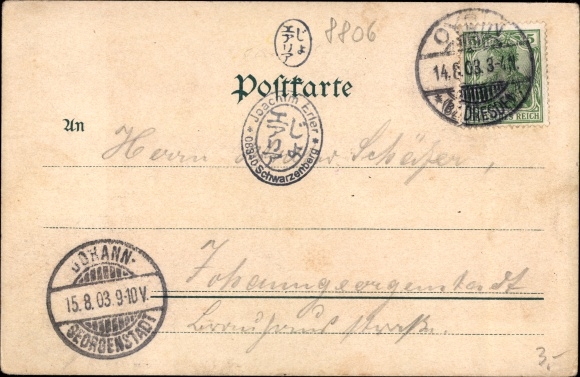 じょ
エアリア
8806
5
14.8.03. 3-4 N.
(BZ. DRESDEN)
REICH
Postkarte
Joachim Erler
じょ
エアリア
08340 Schwarzenberg
An
Herrn Schäfer,
JOHANN-
15.8.03 9-10 V.
GEORGENSTADT
Johanngeorgenstadt
straße.
3,-